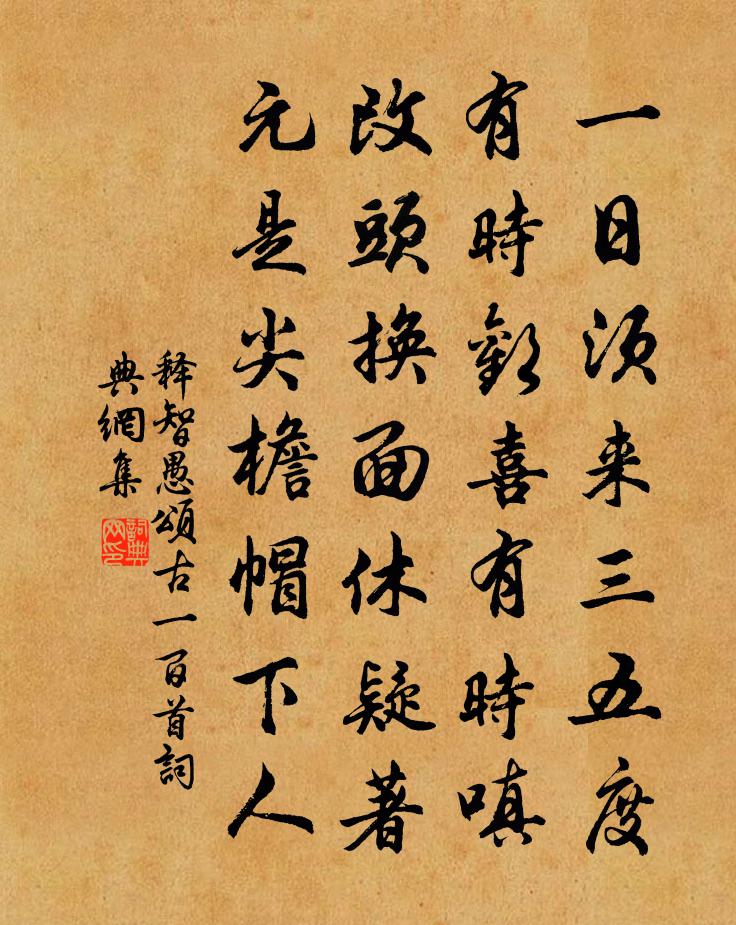 一日須来三五度
有時歡喜有時嗔
改頭換面休疑著
元是尖檐帽下人
释智愚頌古一百首詞
典網集
詞典
网印